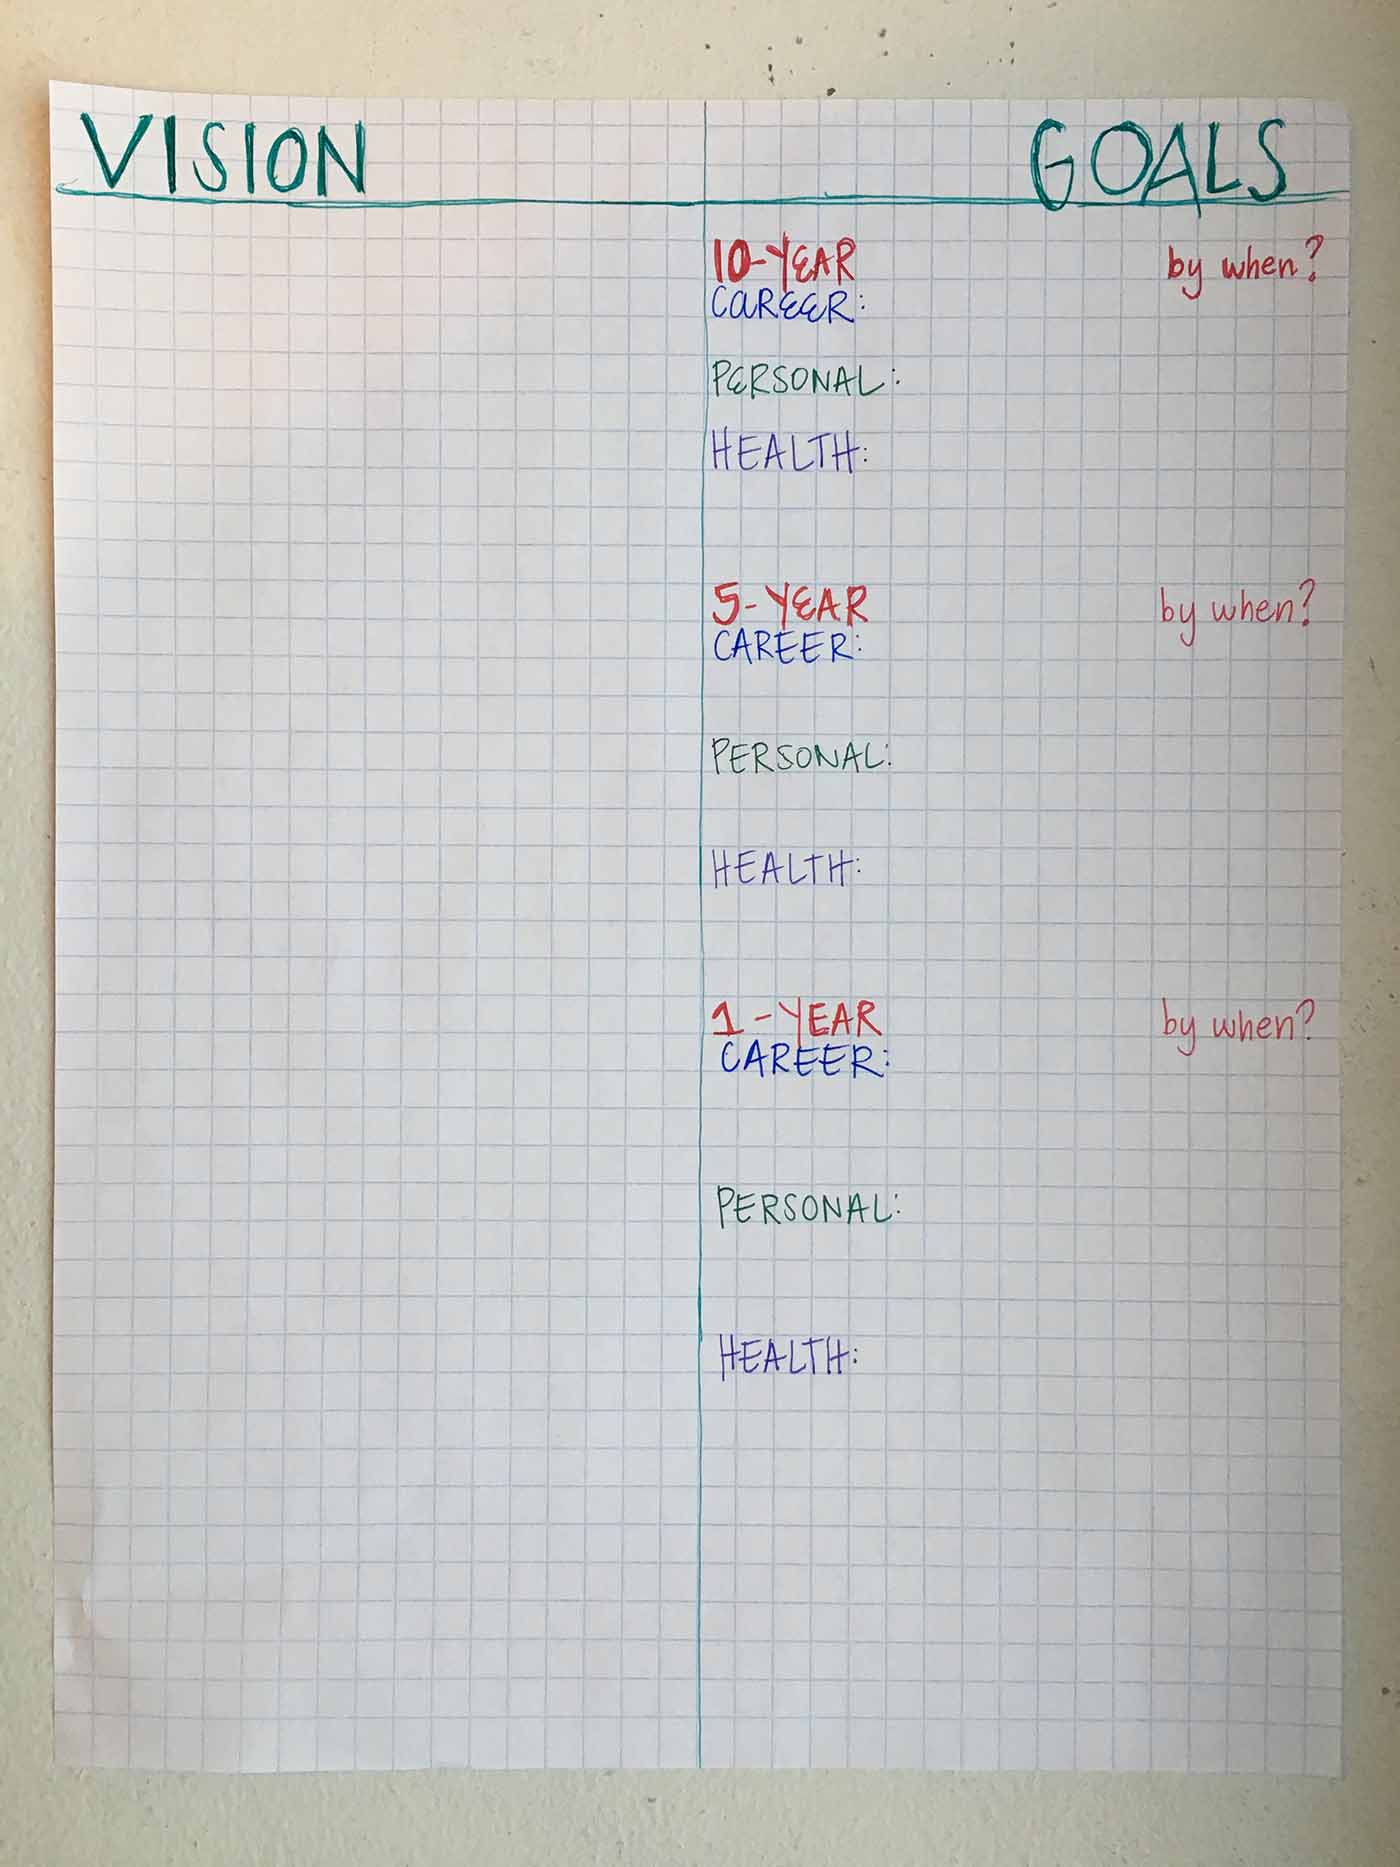 VISION GOALS
10-YEAR by when?
CAREER:
PERSONAL:
HEALTH:
5-YEAR by when?
CAREER:
PERSONAL:
HEALTH:
1-YEAR by when?
CAREER:
PERSONAL:
HEALTH: